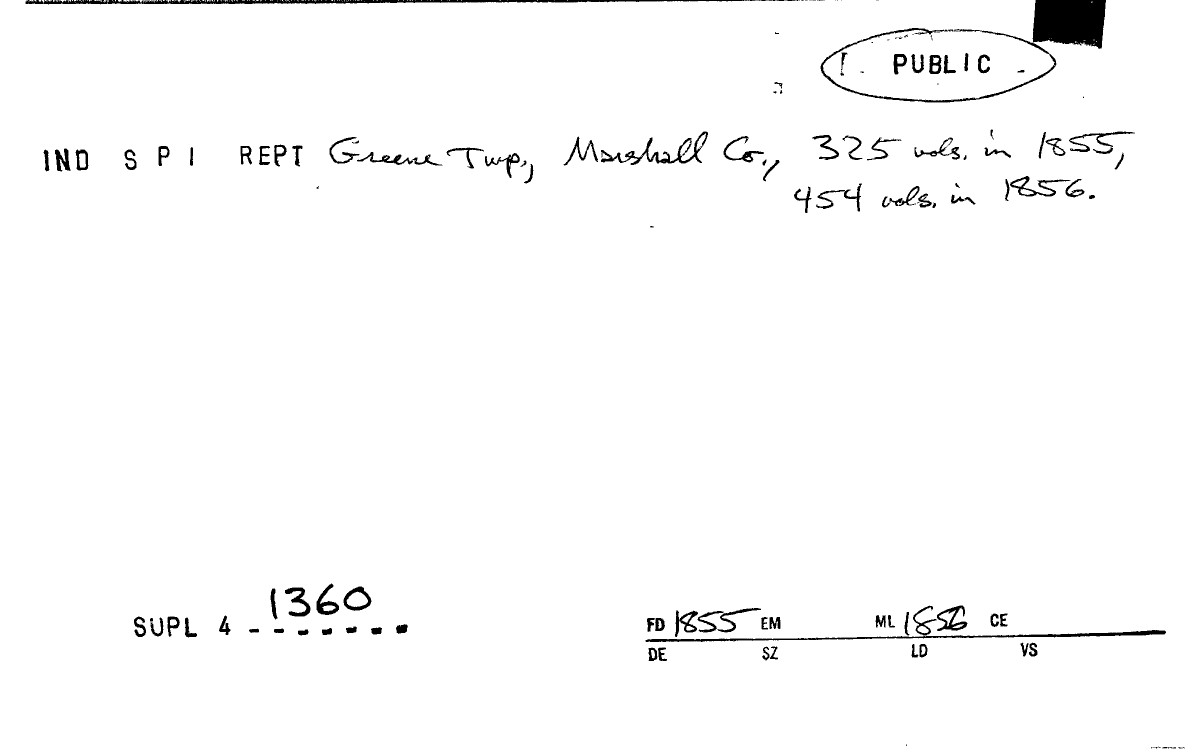 PUBLIC
IND S P I REPT Greene Twp., Marshall Co., 325 vols. in 1855,
454 vols. in 1856.
SUPL 4 1360
FD 1855 EM ML 1856 CE
DE SZ LD VS